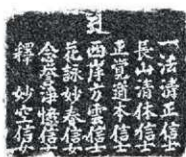 一法清正信士
長山清体信士
正覚道本信士
西岸方雲信士
花詠妙春信女
念誉浄信女
釋 妙空信女